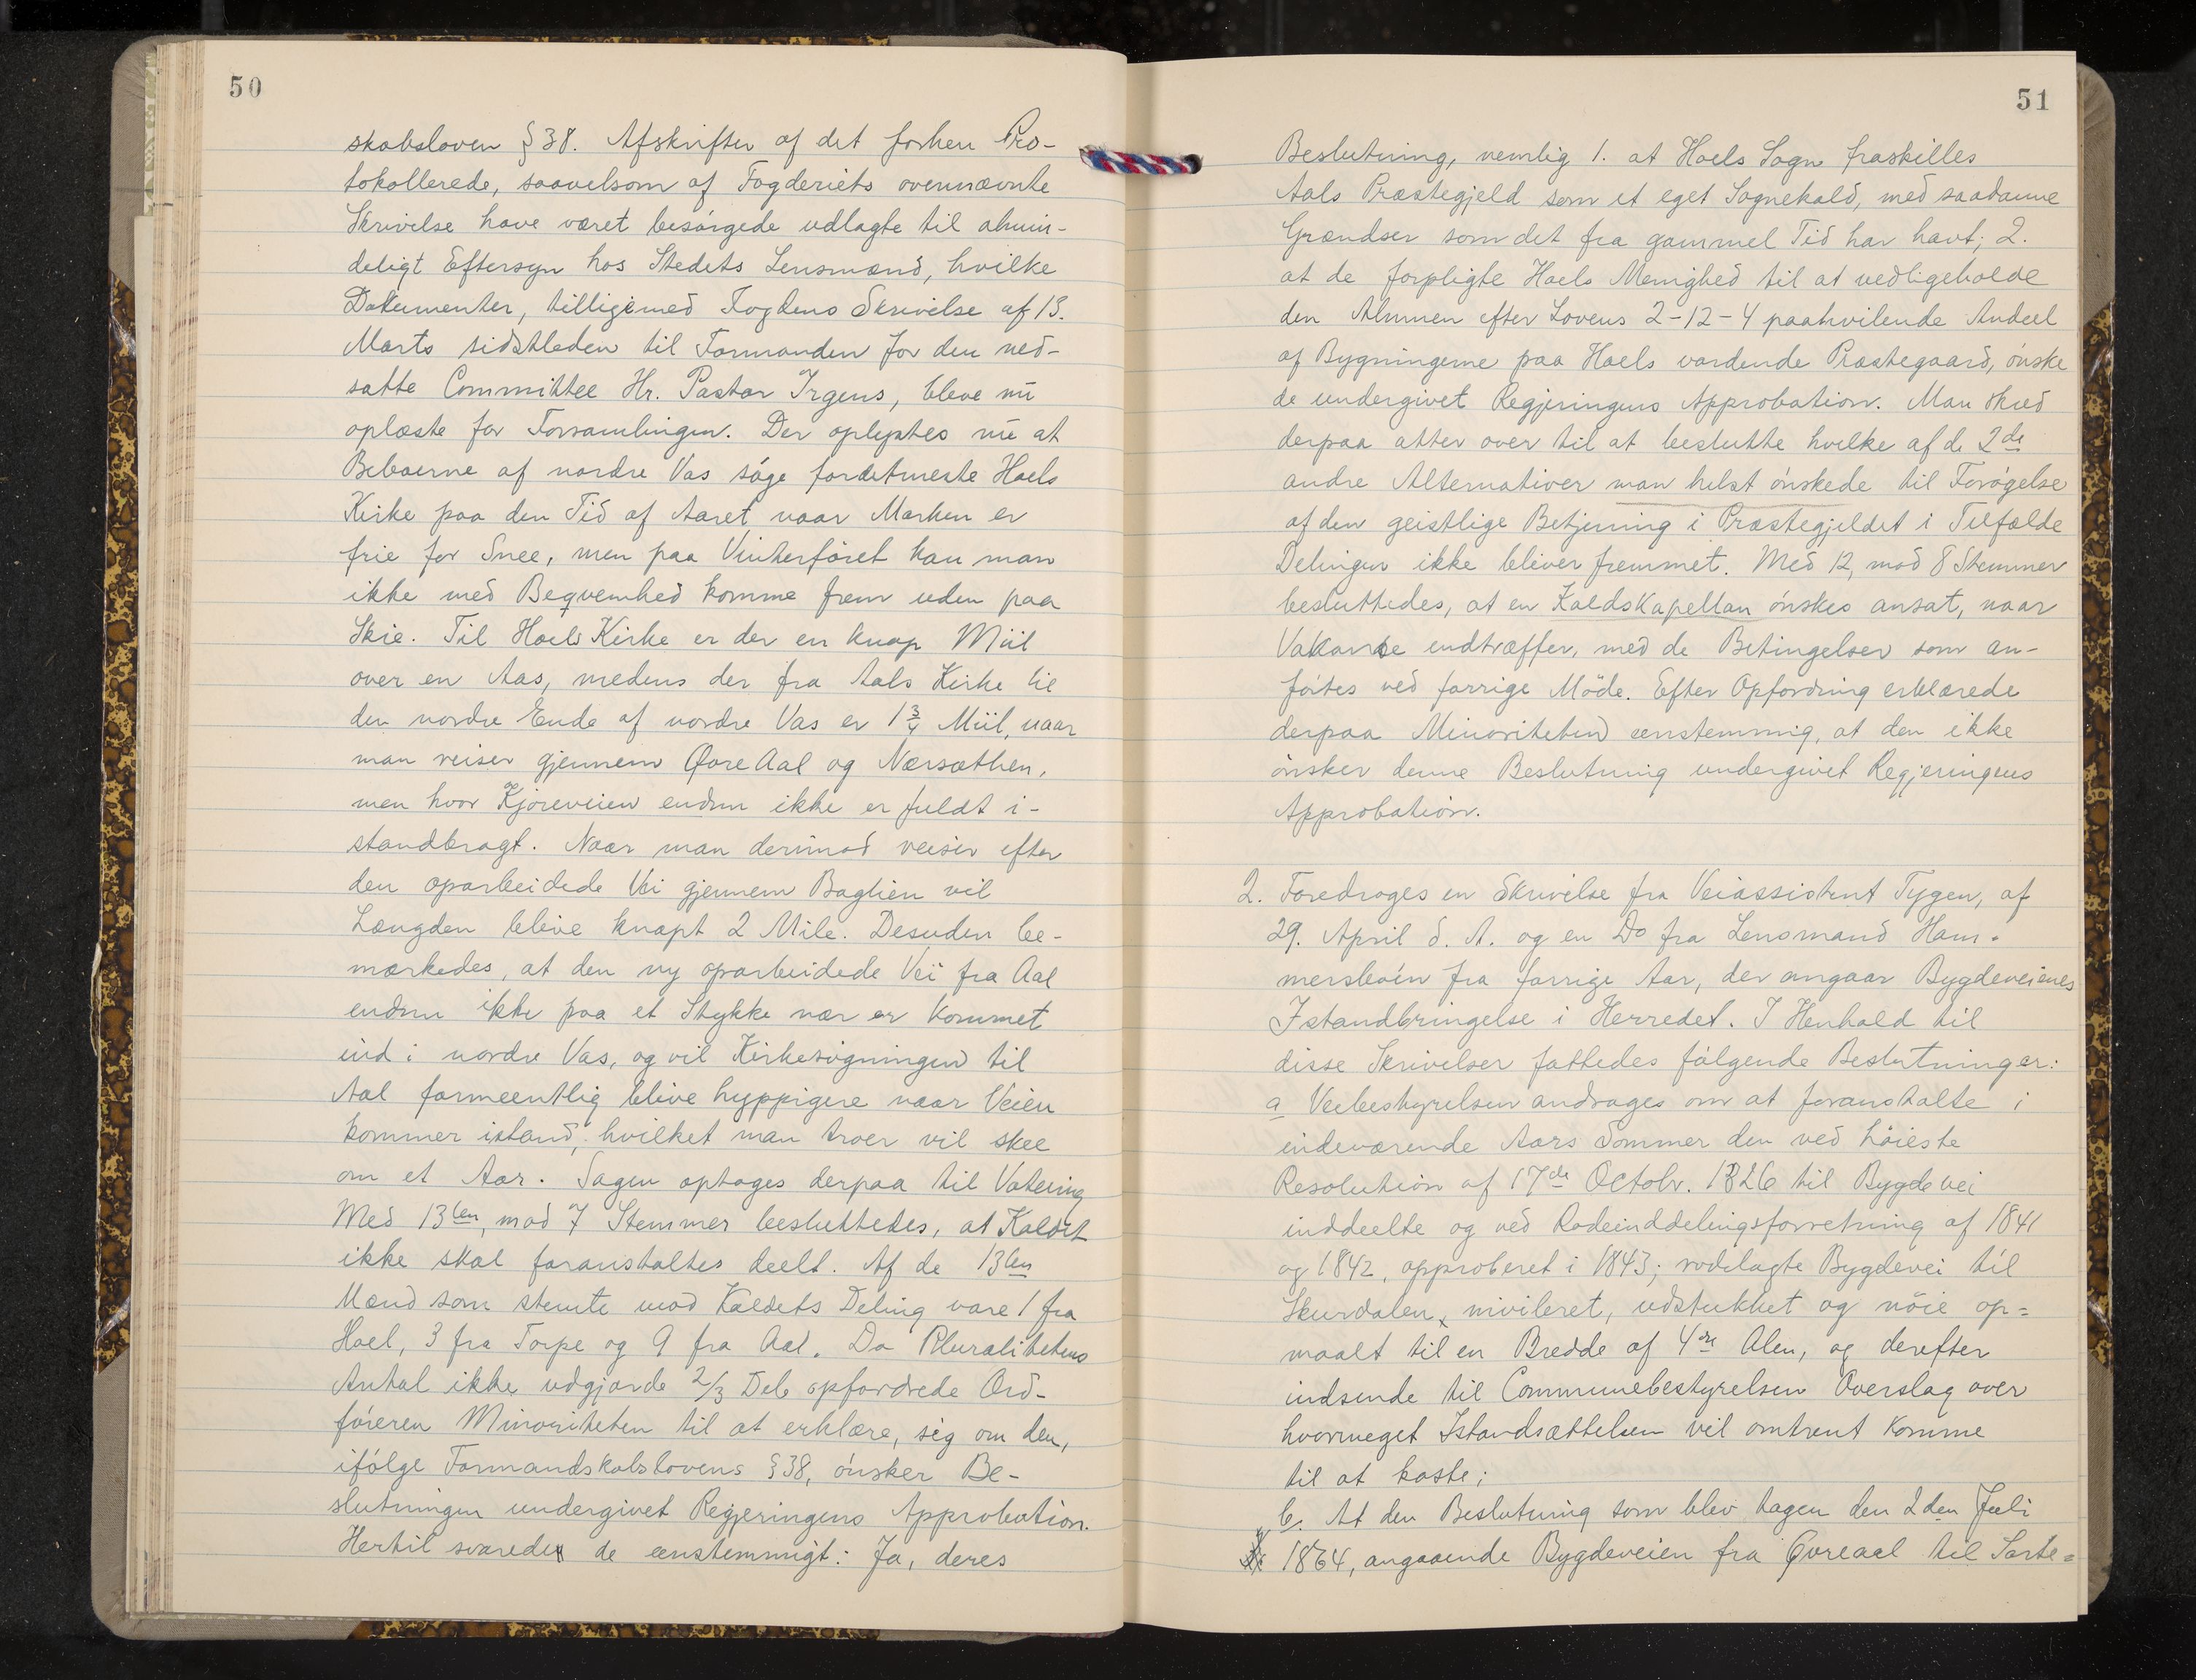 50
skabsloven § 38. Afskrifter af det forhen Pro-
tokollerede, saavelsom af Fogderiets ovennævnte
Skrivelse have været besørgede udlagte til almin-
deligt Eftersyn hos Stedets Lensmand, hvilke
Dokumenter, tilligemed Fogdens Skrivelse af 13.
Marts sidstleden til Formanden for den ned-
satte Committee Hr. Pastor Irgens, bleve nu
oplæste for Forsamlingen. Der oplystes nu at
Beboerne af nordre Vas søge fordetmeste Hoels
Kirke paa den Tid af Aaret naar Marken er
frie for Snee, men paa Vinterføret kan man
ikke med Beqvemhed komme frem uden paa
Skie. Til Hoels Kirke er der en knap Miil
over en Aas, medens der fra Aals Kirke til
den nordre Ende af nordre Vas er 1 3/4 Miil, naar
man reiser gjennem Øvre Aal og Næresathen,
men hvor Kjøreveien endnu ikke er fuldt i-
standbragt. Naar man derimod reiser efter
den oparbeidede Vei gjennem Baglien vil
Længden blive knapt 2 Mile. Desuden be-
mærkedes, at den ny oparbeidede Vei fra Aal
endnu ikke paa et Stykke nær er kommet
ind i nordre Vas, og vil Kirkesøgningen til
Aal formeentlig blive hyppigere naar Veien
kommer istand, hvilket man troer vil skee
om et Aar. Sagen optages derpaa til Votering
Med 13ten, mod 7 Stemmer besluttedes, at Kaldet
ikke skal foranstaltes deelt. Af de 13ten
Mænd som stemte mod Kaldets Deling vare 1 fra
Hoel, 3 fra Torpe og 9 fra Aal. Da Pluralitetens
Antal ikke udgjorde 2/3 Dele opfordrede Ord-
føreren Minoriteten til at erklære, sig om den,
ifølge Formandskabslovens § 38, ønsker Be-
slutningen undergivet Regjeringens Approbation.
Hertil svarede de eenstemmigt: Ja, deres
51
Beslutning, nemlig 1. at Hoels Sogn fraskilles
Aals Præstegjeld som et eget Sognekald, med saadanne
Grændser som det fra gammel Tid har havt; 2.
at de forpligte Hoels Menighed til at vedligeholde
den Almuen efter Lovens 2-12-4 paahvilende Andeel
af Bygningerne paa Hoels vordende Præstegaard, ønske
de undergivet Regjeringens Approbation. Man skred
derpaa atter over til at beslutte hvilke af de 2de
andre Alternativer man helst ønskede til Forøgelse
af den geistlige Betjening i Præstegjeldet i Tilfælde
Delingen ikke bliver fremmet. Med 12, mod 8 Stemmer
besluttedes, at en Kaldskapellan ønskes ansat, naar
Vakanse indtræffer, med de Betingelser som an-
førtes ved forrige Møde. Efter Opfordring erklærede
derpaa Minoriteten eenstemmig, at den ikke
ønsker denne Beslutning undergivet Regjeringens
Approbation.
2. Foredroges en Skrivelse fra Veiassistent Tygen, af
29. April d. A. og en Do fra Lensmand Ham-
mersbøen fra forrige Aar, der angaar Bygdeveienes
Istandbringelse i Herredet. I Henhold til
disse Skrivelser fattedes følgende Beslutninger:
a Veibestyrelsen andrages om at foranstalte i
indeværende Aars Sommer den ved høieste
Resolution af 17de Octobr. 1826 til Bygdevei
inddeelte og ved Rodeinddelingsforretning af 1841
og 1842, approberet i 1843; rodelagte Bygdevei til
Skurdalen, nivileret, udstukket og nøie op=
maalt til en Bredde af 4re Alen, og derefter
indsende til Communebestyrelsen Overslag over
hvormeget Istandsættelsen vil omtrent komme
til at koste;
b. At den Beslutning som blev tagen den 2den Juli
1864, angaaende Bygdeveien fra Øvreaal til Sarte=